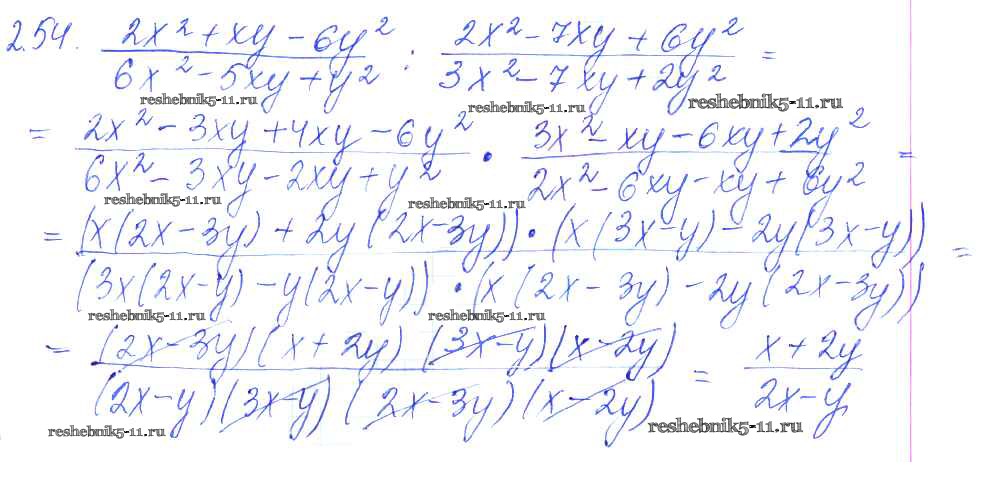 2.54. (2x² + xy - 6y²)/(6x² - 5xy + y²) : (2x² - 7xy + 6y²)/(3x² - 7xy + 2y²) =
reshebnik5-11.ru reshebnik5-11.ru reshebnik5-11.ru
= (2x² - 3xy + 4xy - 6y²)/(6x² - 3xy - 2xy + y²) · (3x² - xy - 6xy + 2y²)/(2x² - 6xy - xy + 6y²) =
reshebnik5-11.ru reshebnik5-11.ru
= ((x(2x - 3y) + 2y(2x - 3y)) · (x(3x - y) - 2y(3x - y)))/((3x(2x - y) - y(2x - y)) · (x(2x - 3y) - 2y(2x - 3y))) =
reshebnik5-11.ru reshebnik5-11.ru
= ((2x - 3y)(x + 2y)(3x - y)(x - 2y))/((2x - y)(3x - y)(2x - 3y)(x - 2y)) = (x + 2y)/(2x - y)
reshebnik5-11.ru reshebnik5-11.ru